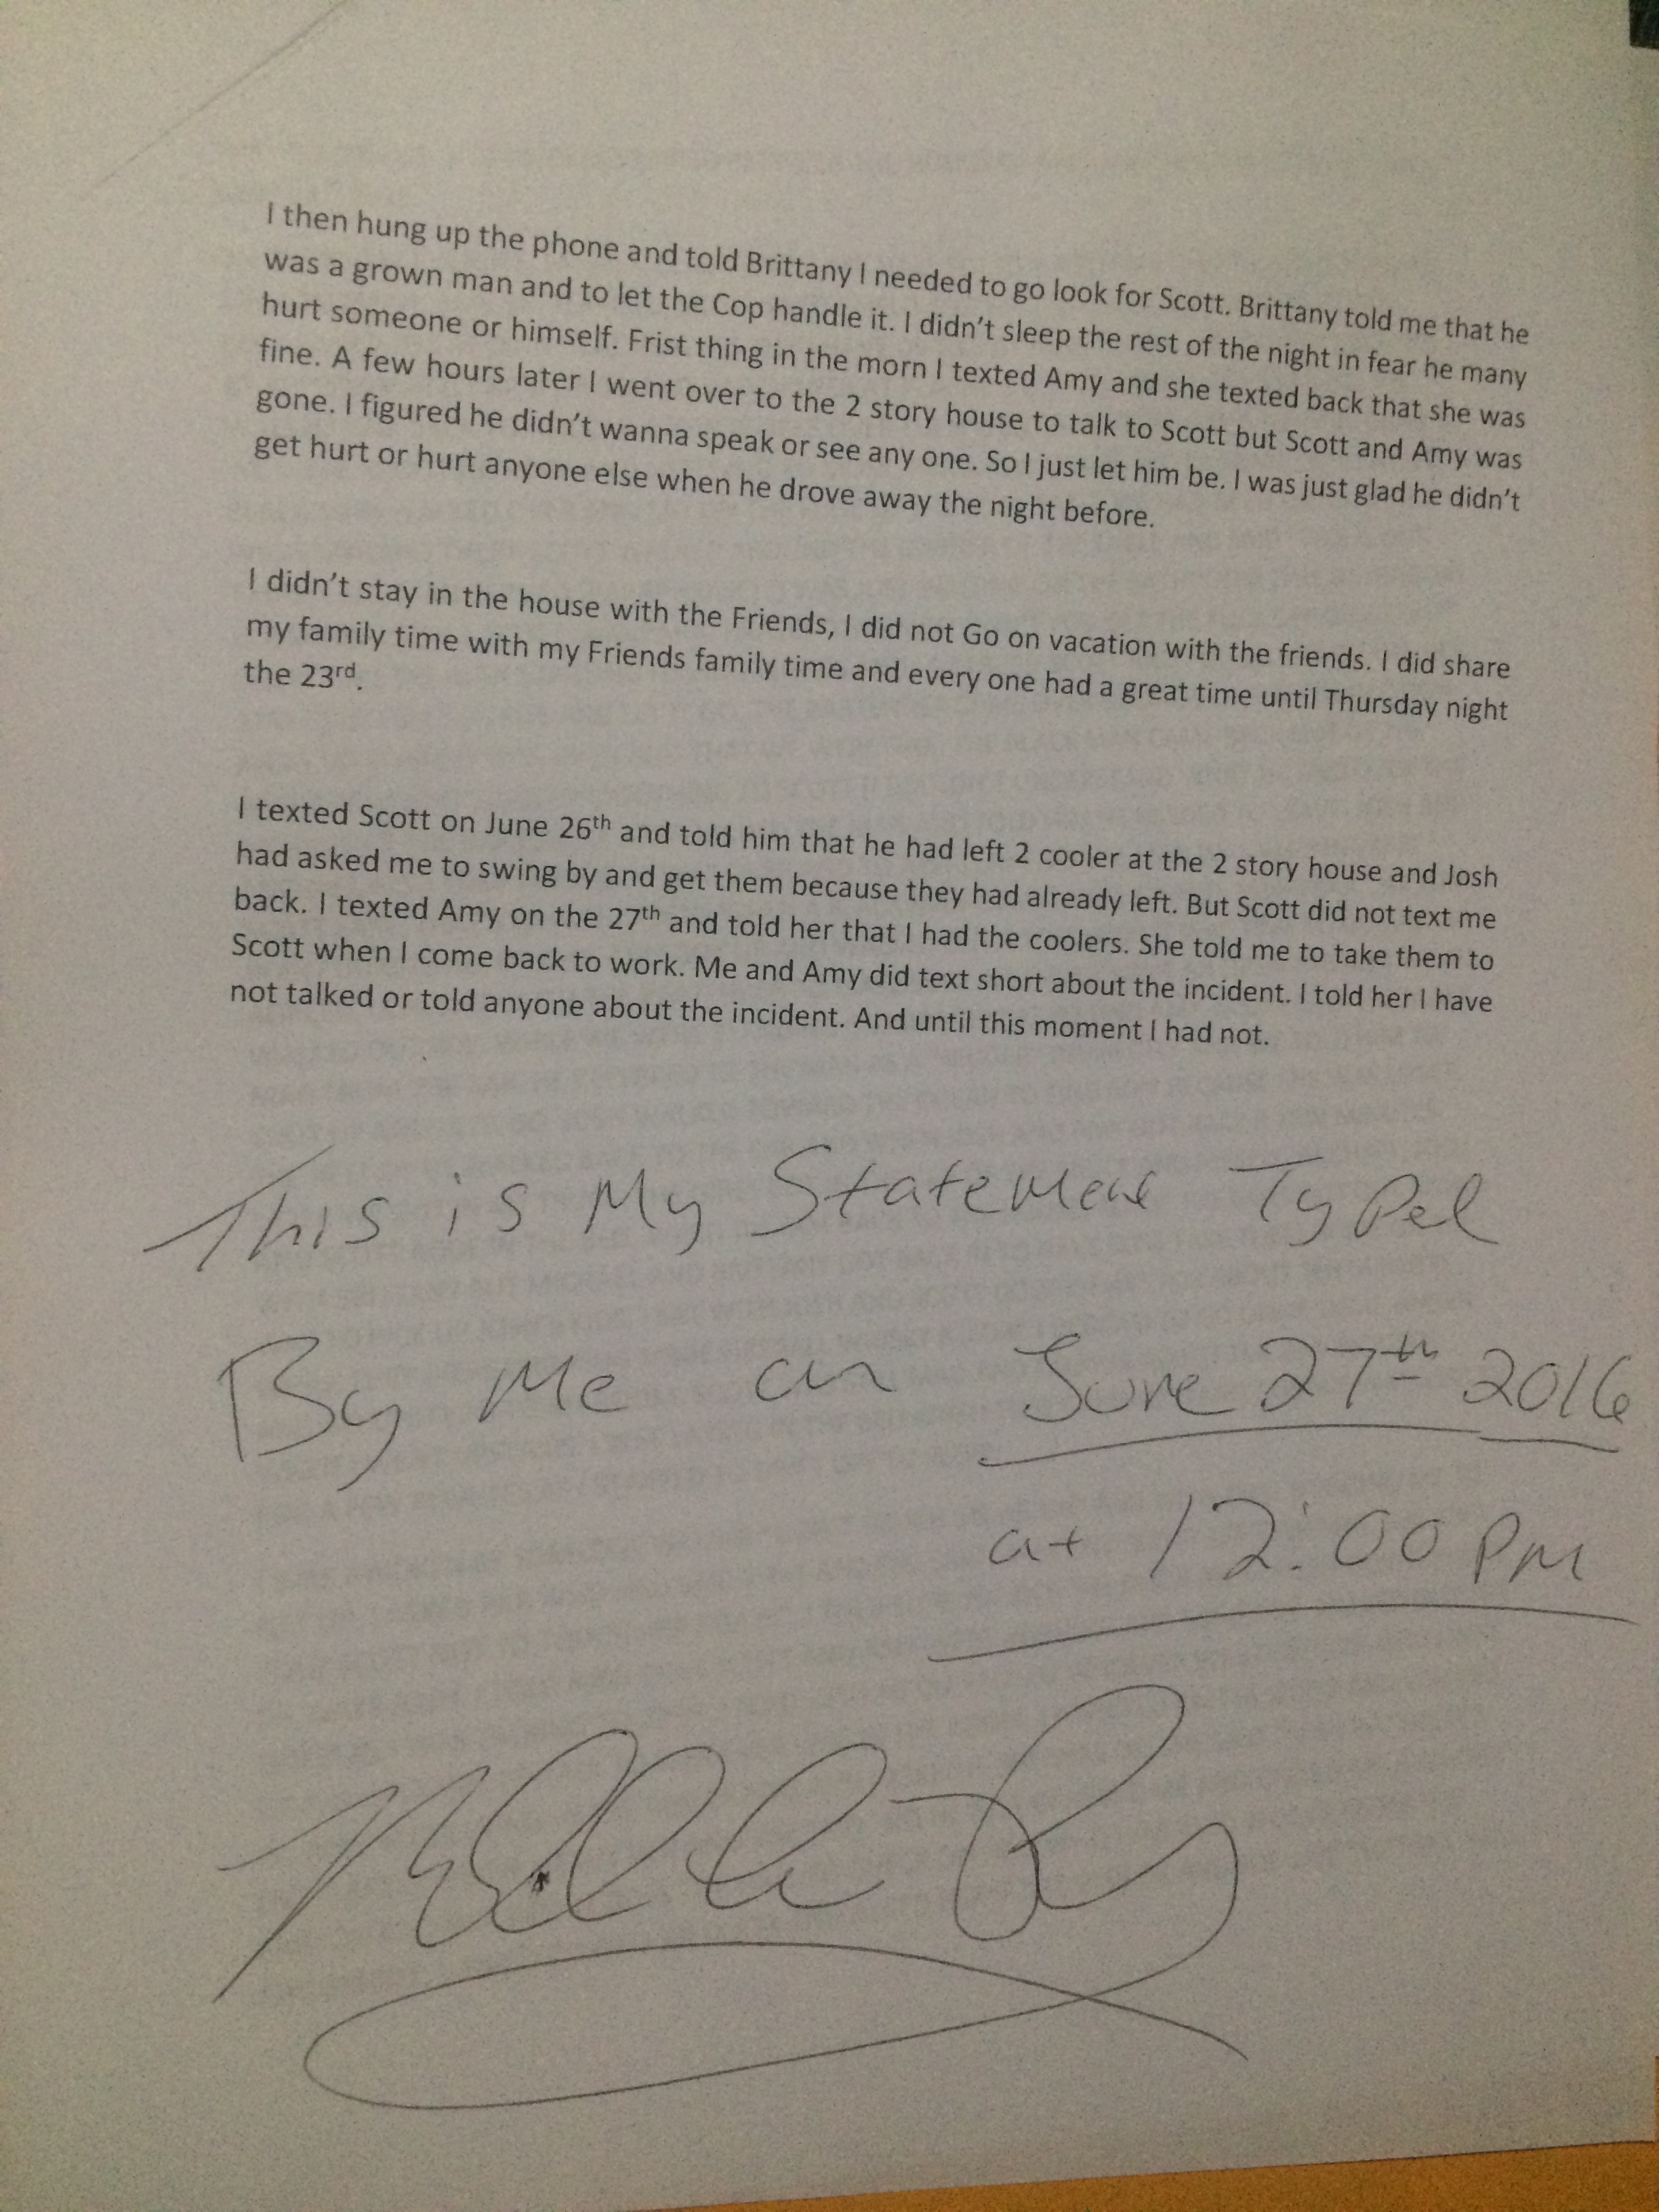 I then hung up the phone and told Brittany I needed to go look for Scott. Brittany told me that he
was a grown man and to let the Cop handle it. I didn't sleep the rest of the night in fear he many
hurt someone or himself. Frist thing in the morn I texted Amy and she texted back that she was
fine. A few hours later I went over to the 2 story house to talk to Scott but Scott and Amy was
gone. I figured he didn't wanna speak or see any one. So I just let him be. I was just glad he didn't
get hurt or hurt anyone else when he drove away the night before.
I didn't stay in the house with the Friends, I did not Go on vacation with the friends. I did share
my family time with my Friends family time and every one had a great time until Thursday night
the 23rd.
I texted Scott on June 26th and told him that he had left 2 cooler at the 2 story house and Josh
had asked me to swing by and get them because they had already left. But Scott did not text me
back. I texted Amy on the 27th and told her that I had the coolers. She told me to take them to
Scott when I come back to work. Me and Amy did text short about the incident. I told her I have
not talked or told anyone about the incident. And until this moment I had not.
This is My Statement Typed
By Me on June 27th 2016
at 12:00 PM